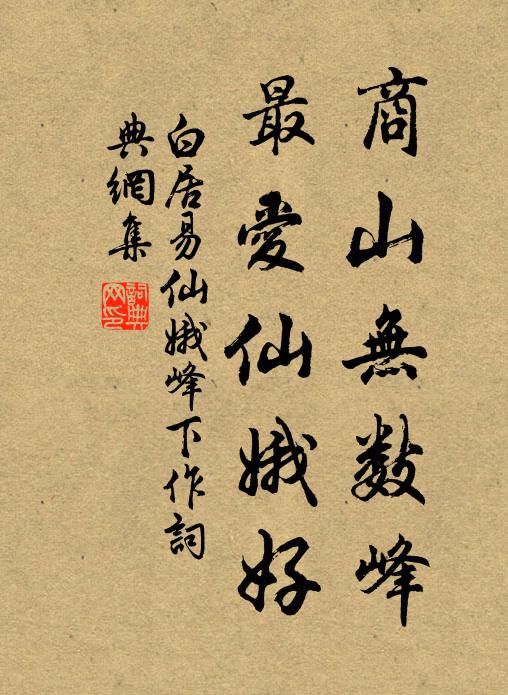 商山無數峰
最愛仙娥好
白居易仙娥峰下作詞
典網集
詞典网印